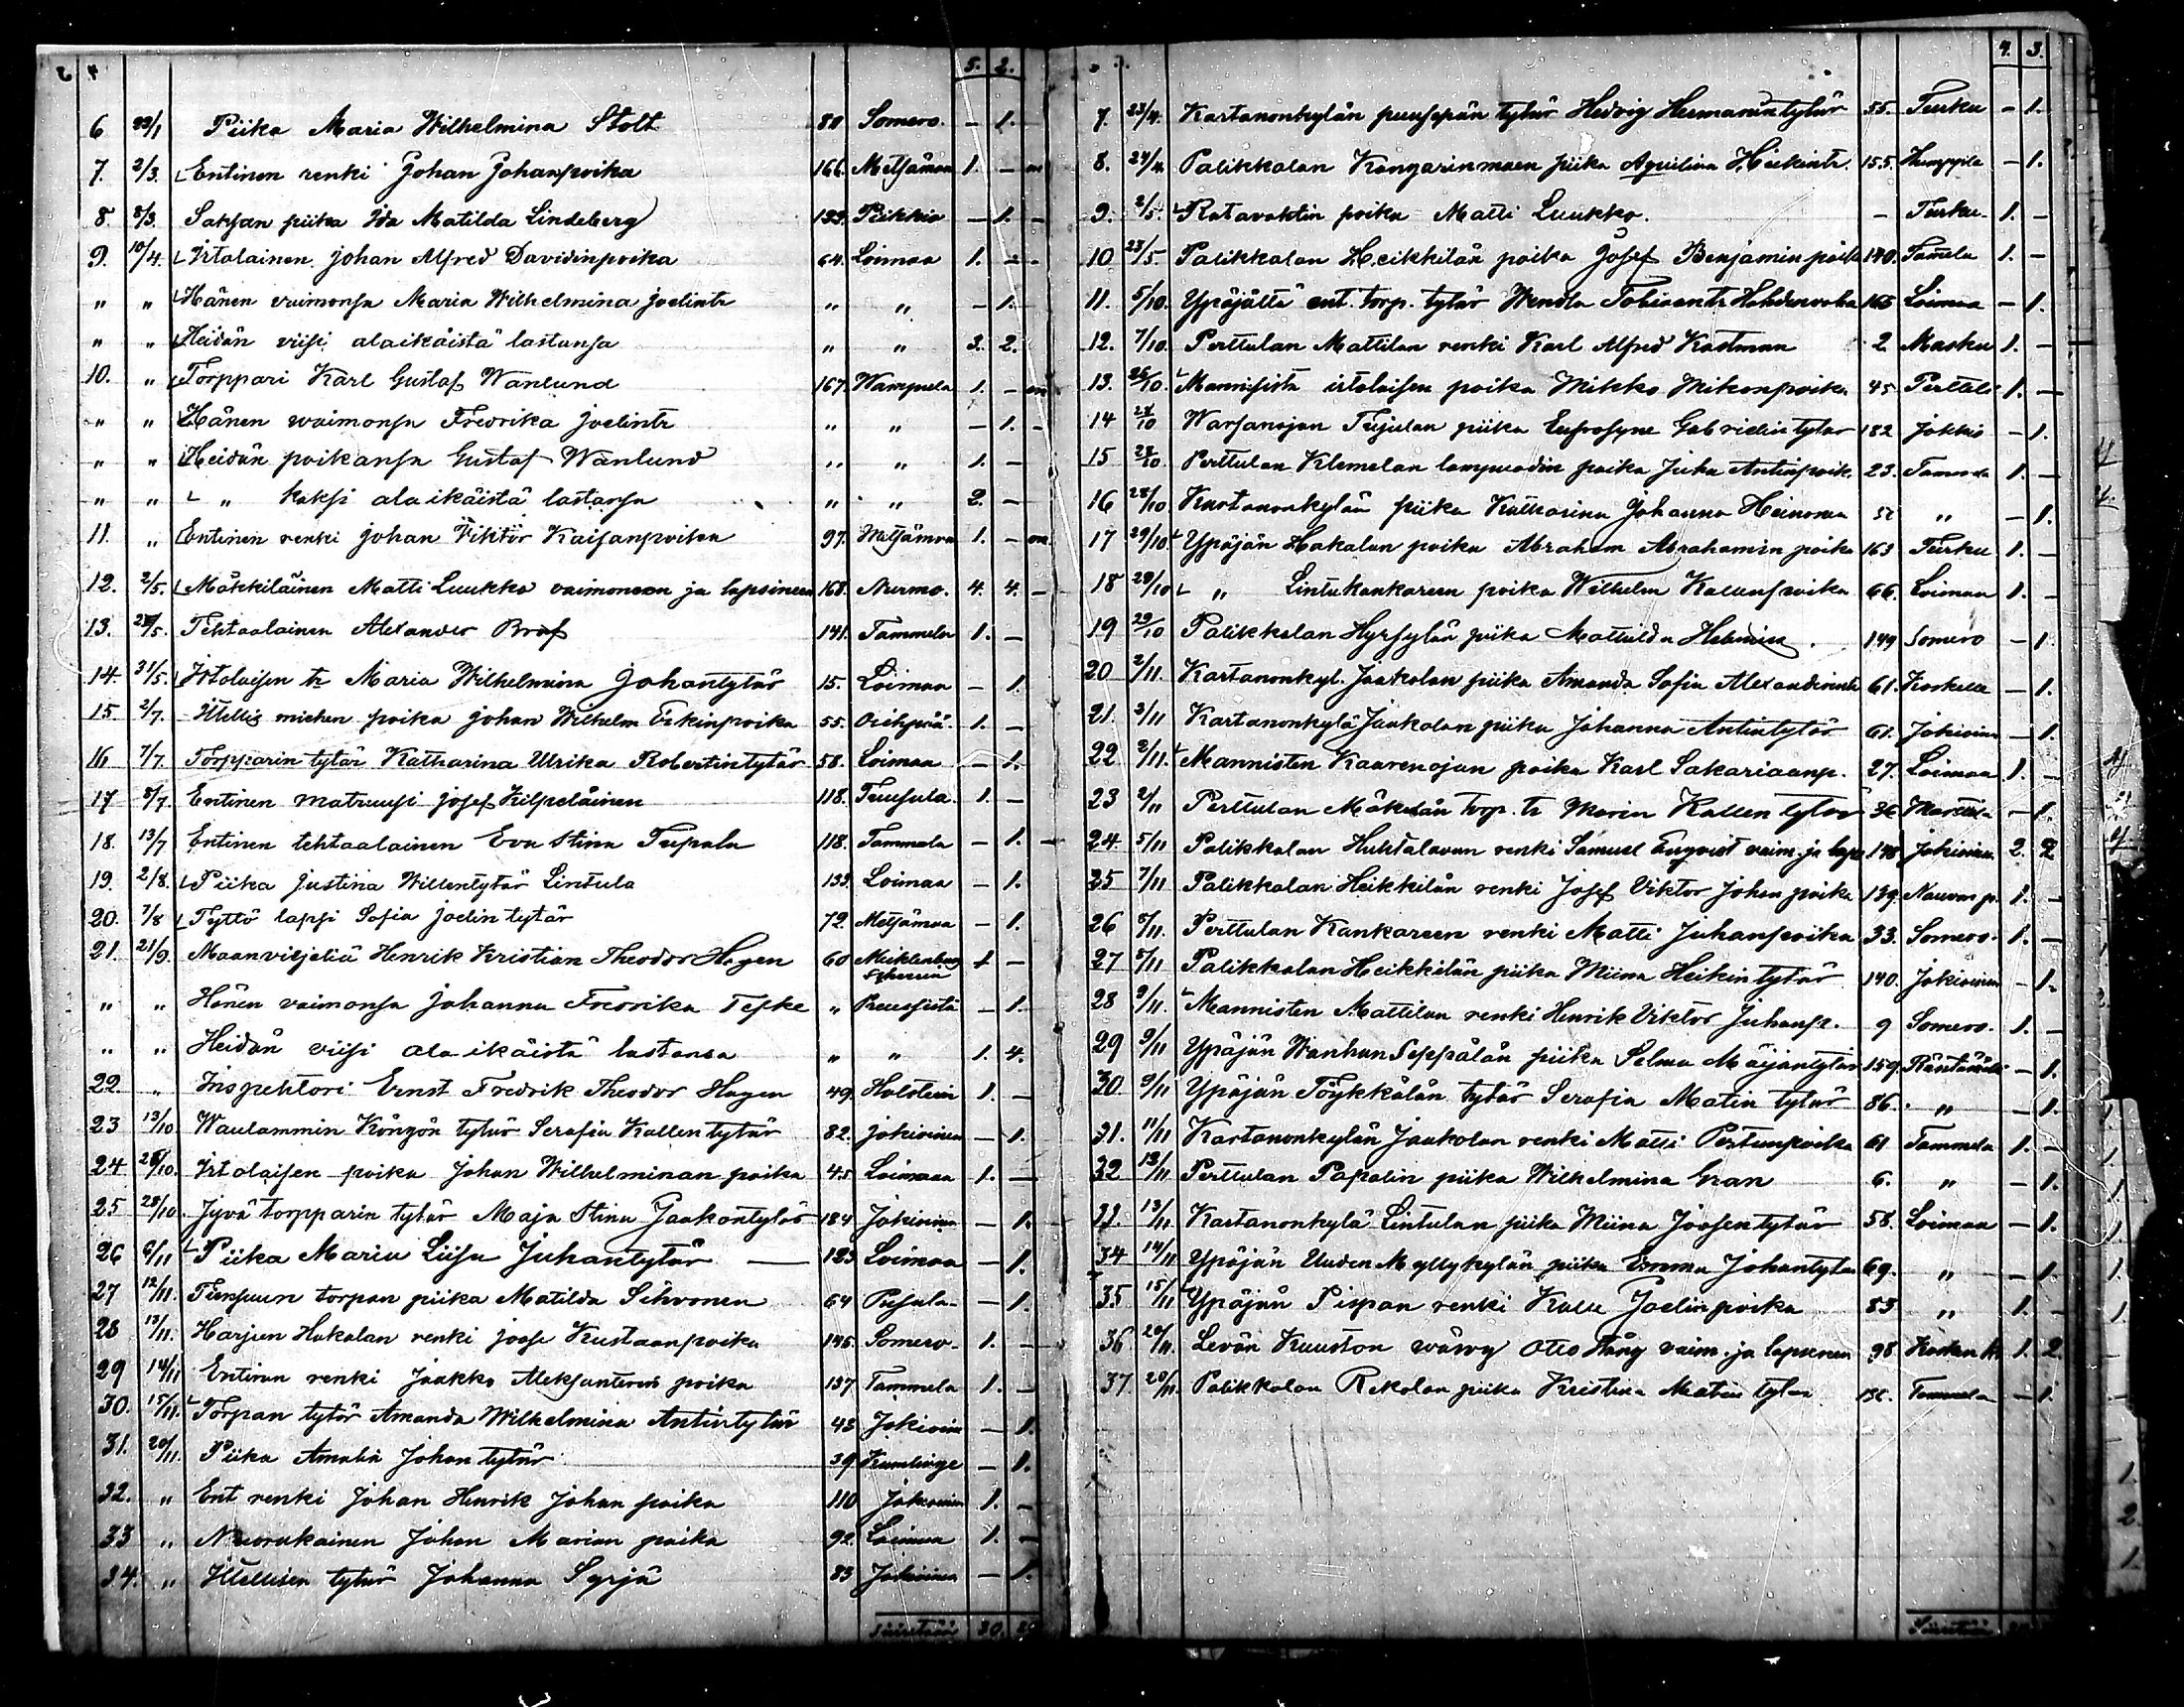 5. 2.
6 22/1 Piika Maria Wilhelmina Stolt 80 Somero. — 1.
7. 2/3. Entinen renki Johan Johanpoika 166. Metsämaa 1. —
8 8/3. Saksan piika Ida Matilda Lindeberg 133. Piikkio — 1. —
9. 10/4. Irtolainen Johan Alfred Davidinpoika 64. Loimaa 1. —
" " Hänen vaimonsa Maria Wilhelmina Joelintr " " — 1.
" " Heidän viisi alaikäistä lastansa " " 3. 2.
10. " Torppari Karl Gustaf Wänlund 167. Wampula 1. —
" " Hänen waimonsa Fredrika Joelintr " " — 1.
" " Heidän poikansa Gustaf Wänlund " " 1. —
" " " kaksi alaikäistä lastansa " " 2. —
11. " Entinen renki Johan Viktor Kaisanpoika 97. Metsämaa 1. —
12. 2/5. Mäkkiläinen Matti Luukko vaimoneen ja lapsineen 168. Nurmo. 4. 4. —
13. /5. Tehtaalainen Alexander Braf 141. Tammela 1. —
14. 31/5. Irtolaisen tr Maria Wilhelmina Johantytär 15. Loimaa — 1.
15. 2/7. Itellis miehen poika Johan Wilhelm Erkinpoika 55. Oripää. 1. —
16 7/7. Torpparin tytär Katharina Ulrika Robertintytär 58. Loimaa — 1.
17 8/7. Entinen matruusi Josef Kilpeläinen 118. Tuusula. 1. —
18. 13/7 Entinen tehtaalainen Eva Stina Tupala 118. Tammela — 1. —
19. 2/8. Piika Justina Willentytär Lintula 133. Loimaa — 1.
20. 7/8 Tyttö lapsi Sofia Joelin tytär 72. Metsämaa — 1.
21. 21/9. Maanviljeliä Henrik Kristian Theodor Hagen 60 Meiklenburg Schverin 1 —
" " Hänen vaimonsa Johanna Fredrika Tepke " Preussistä — 1.
" " Heidän viisi ala-ikäistä lastansa " " 1. 4.
22. " Inspehtori Ernst Fredrik Theodor Hagen 49. Holstein 1. —
23 13/10 Waulammin Köngön tytär Serafia Kallentytär 82. Jokioinen — 1.
24 /10. Irtolaisen poika Johan Wilhelminan poika 45 Loimaa 1. —
25 28/10. Jyvä torpparin tytär Maja Stina Jaakontytär 184 Jokioinen — 1.
26 6/11 Piika Maria Liisa Juhantytär — 123 Loimaa — 1.
27 12/11. torpan piika Matilda Sihvonen 64 Pusula. — 1.
28 13/11. Harjun Hakalan renki Joose Kustaanpoika 146. Somero. 1. —
29 14/11 Entinen renki Jaakko Aleksanterin poika 137 Tammela 1. —
30. 15/11. Torpan tytär Amanda Wilhelmina Antintytär 43 Jokioin — 1.
31. 20/11. Piika Amalia Johan tytär 39 Kumlinge — 1.
32. " Ent renki Johan Henrik Johan poika 110 Jokioinen 1. —
33 " Nuorukainen Johan Marian poika 92. Loimaa 1. —
34. " Itellisen tytär Johanna Syrjä 83 Jokioinen — 1.
Siirretään 30.
4. 3.
7. 23/4. Kartanonkylän puusepän tytär Hedvig Hermanintytär 55. Turku — 1.
8. 24/4 Palikkalan Kangarinmaen piika Aqvilina Heikintr. 155. Humppila — 1.
9. 2/5. Ratavahtin poika Matti Luukko. — Turku. 1. —
10 23/5 Palikkalan Heikkilän poika Josef Benjamin poika 140. Tamela 1. —
11. 5/10. Ypäjältä ent. torp. tytär Wendla Tobiaantr 165 Loimaa — 1.
12. 7/10. Perttulan Mattilan renki Karl Alfred Kastman 2 Masku 1. —
13. 26/10. Mannisista irtolaisen poika Mikko Mikonpoika 45 Pertteli 1. —
14 /10 Warsanojan piika Eufrosyne Gabrielin tytar 182 Jokkis — 1.
15 /10. Perttulan Klemelan lampuodin poika Juha Antinpoik. 23. Tammela 1. —
16 28/10 Kartanonkylän piika Katharina Johanna Heinonen 52 " — 1.
17 29/10. Ypäjän Hakalan poika Abraham Abrahamin poika 163 Turku 1. —
18 29/10 " Lintukankareen poika Wilhelm Kallenpoika 66. Loimaa 1. —
19 29/10 Palikkalan Hyrsylän piika Mathilda 149 Somero — 1.
20 2/11. Kartanonkyl. Jaakolan piika Amanda Sofia Alexandrintr 61. Koskelle — 1.
21. 2/11 Kartanonkylä Jaakolan piika Johanna Antintytär 61. Jokioinen — 1.
22 2/11. Mannisten Kaarenojan poika Karl Sakariaanp. 27. Loimaa 1. —
23 2/11 Perttulan Mäkelän torp. tr Maria Kallen tytär 36 Marttila — 1.
24 5/11 Palikkalan Huhtalavan renki Samuel Enqvist vaim. ja laps 148 Jokioinen. 2. 2
25 7/11 Palikkalan Heikkilän renki Josef Viktor Johan poika 139. Nauvon p. 1. —
26 8/11. Perttulan Kankareen renki Matti Juhanpoika 33. Somero. 1. —
27 8/11 Palikkalan Heikkilän piika Miina Heikin tytär 140. Jokioinen — 1.
28 9/11. Mannisten Mattilan renki Henrik Viktor Juhanp. 9 Somero. 1. —
29 9/11 Ypäjän Wanhan Seppälän piika Selma Maijantytär 159. Räntämäki — 1.
30. 9/11 Ypäjän Töykkälän tytär Serafia Matin tytär 86. " — 1.
31. 11/11 Kartanonkylän Jaakolan renki Matti Pertunpoika 61 Tammela 1. —
32 13/11 Perttulan Papalin piika Wilhelmina Gran 6. " — 1.
33. 13/11 Kartanonkylä Lintulan piika Miina Joosentytär 58. Loimaa — 1.
34 14/11 Ypäjän Uuden Myllykylän piika Emma Johantytär 69. " — 1.
35 15/11 Ypäjän Pispan renki Kalle Joelinpoika 83 " 1. —
36 20/11. Levän Kuuston vaim. ja lapsineen 98 1. 2.
37. 20/11. Palikkalan Rekolan piika Kristina Matin tytär 136. Tammela — 1.
Siirretään